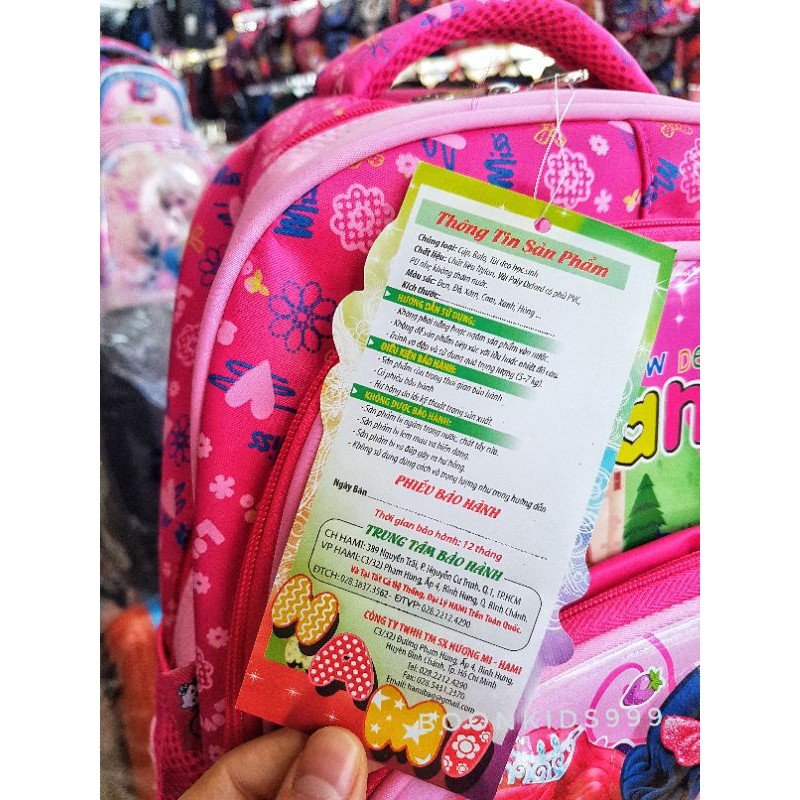 Thông Tin Sản Phẩm
Chủng loại: Cặp, Balo, Túi đeo học sinh
Chất liệu: Chất liệu Nylon, Vải Poly Oxford có phủ PVC,
PU nhẹ, không thấm nước.
Màu sắc: Đen, Đỏ, Xám, Cam, Xanh, Hồng ...
Kích thước:
HƯỚNG DẪN SỬ DỤNG:
- Không phơi nắng hoặc ngâm sản phẩm vào nước.
- Không để sản phẩm tiếp xúc với lửa hoặc nhiệt độ cao.
- Tránh va đập và sử dụng quá trọng lượng (5-7 kg).
ĐIỀU KIỆN BẢO HÀNH:
- Sản phẩm còn trong thời gian bảo hành
- Có phiếu bảo hành
- Hư hỏng do lỗi kỹ thuật trong sản xuất.
KHÔNG ĐƯỢC BẢO HÀNH:
- Sản phẩm bị ngâm trong nước, chất tẩy rửa.
- Sản phẩm bị lem màu và biến dạng.
- Sản phẩm bị va đập gây ra hư hỏng.
- Không sử dụng đúng cách và trọng lượng như trong hướng dẫn
PHIẾU BẢO HÀNH
Ngày Bán
Thời gian bảo hành: 12 tháng
TRUNG TÂM BẢO HÀNH
CH HAMI: 389 Nguyễn Trãi, P. Nguyễn Cư Trinh, Q.1, TP.HCM
VP HAMI: C3/32J Phạm Hùng, Ấp 4, Bình Hưng, Q. Bình Chánh.
ĐTCH: 028.3837.3562 - ĐTVP: 028.2212.4290
Và Tại Tất Cả Hệ Thống, Đại Lý HAMI Trên Toàn Quốc.
CÔNG TY TNHH TM SX HƯƠNG MI - HAMI
C3/32J Đường Phạm Hùng, Ấp 4, Bình Hưng,
Huyện Bình Chánh, Tp. Hồ Chí Minh
Tel: 028.2212.4290
Fax: 028.5431.2370
Email: hamibag@gmail.com
HAMI
BOONKIDS999
Miss
Miss